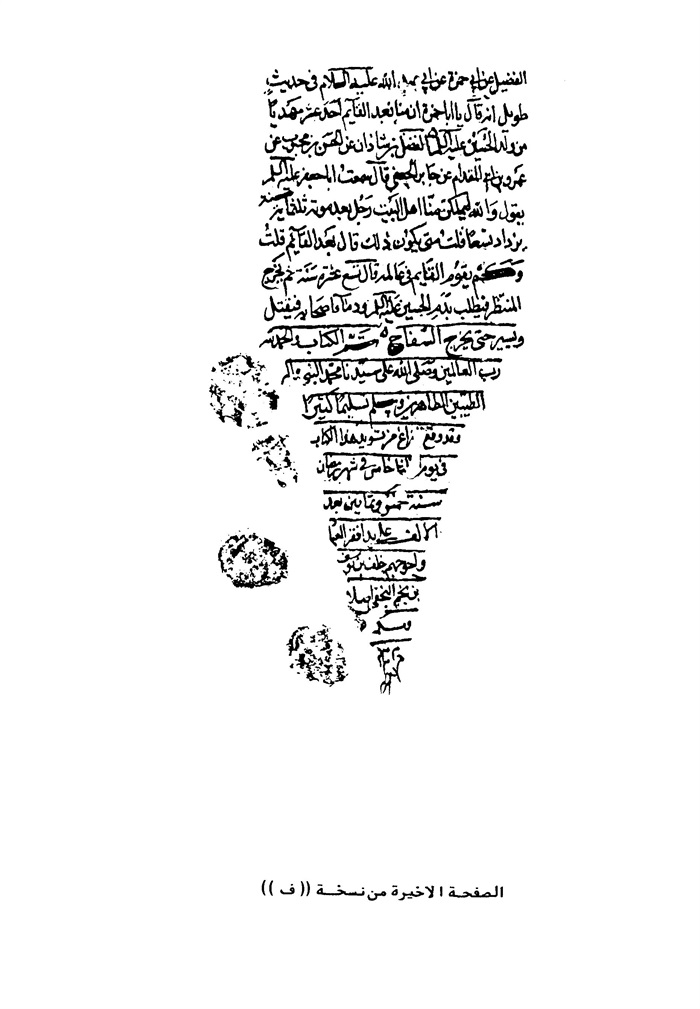 الفضيل عن ابي حمزة عن ابي عبد الله عليه السلام في حديث
طويل انه قال يا ابا حمزة ان منا بعد القايم احد عشر مهديا
من ولد الحسين عليه السلم الفضل بن شاذان عن الحسن بن محبوب عن
عمرو بن ابي المقدام عن جابر الجعفي قال سمعت ابا جعفر عليه السلم
يقول والله ليملكن منا اهل البيت رجل بعد موته ثلثماية سنة
يزداد تسعا قلت متى يكون ذلك قال بعد القايم قلت
وكم يقوم القايم في عالمه قال تسع عشرة سنة ثم يخرج
المنتظر فيطلب بدم الحسين عليه السلم ودماء اصحابه فيقتل
ويسير حتى يخرج السفاح تم الكتاب والحمد لله
رب العالمين وصلى الله على سيدنا محمد النبي واله
الطيبين الطاهرين وسلم تسليما كثيرا
وقد وقع الفراغ من تسويد هذا الكتاب
في يوم الخامس في شهر رمضان
سنة خمس وثمانين بعد
الالف على يد افقر العباد
واحوجهم خلف بن يوسف
بن نجم النجفي